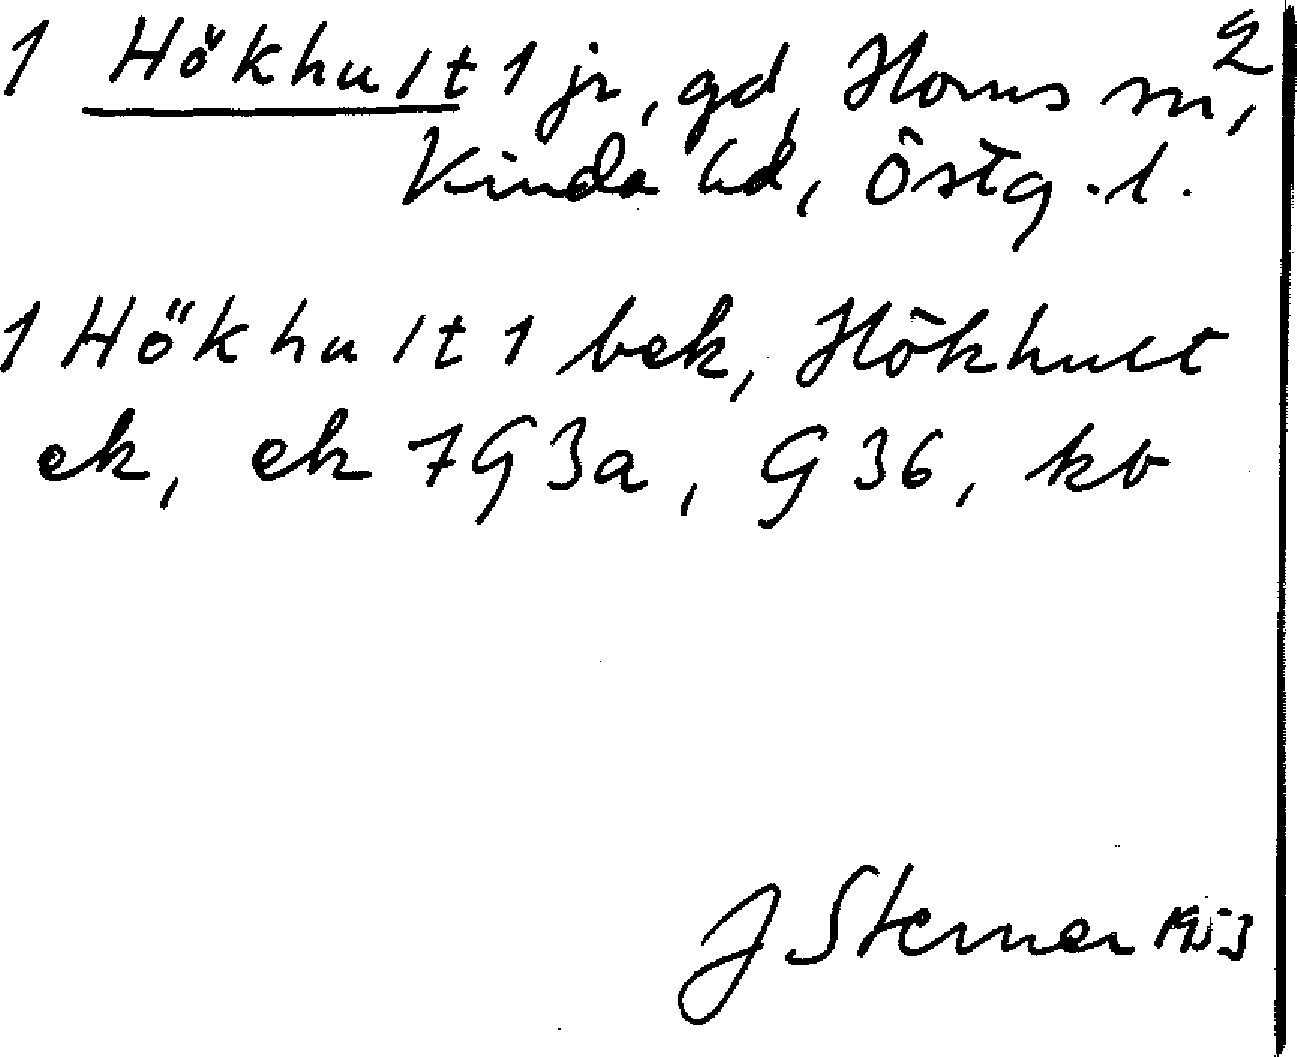 2
1 Hökhult 1 jr, gd, Horns sn,
Kinda hd, Östg.l.
1 Hökhult 1 bek, Hökhult
ek, ek 7G3a, G36, kb
J Sterner 1953